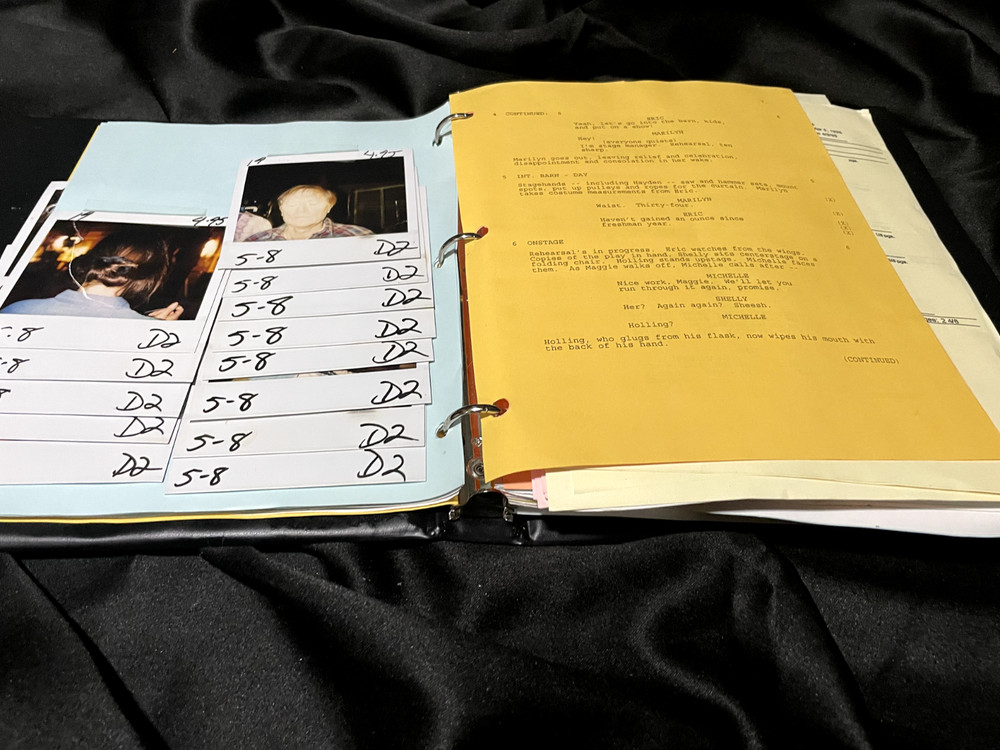 19
4-95
5-8 D2
5-8 D2
5-8 D2
5-8 D2
5-8 D2
5-8 D2
5-8 D2
5-8 D2
19
4-95
5-8 D2
-8 D2
8 D2
D2
D2
4 CONTINUED: 4
ERIC
Yeah, let's go into the barn, kids,
and put on a show!
MARILYN
Hey!
(everyone quiets)
I'm stage manager. Rehearsal, ten
sharp.
Marilyn goes out, leaving relief and celebration,
disappointment and consolation in her wake.
5 INT. BARN - DAY 5
Stagehands -- including Hayden -- saw and hammer sets, mount
spots, put up pulleys and ropes for the curtain. Marilyn
takes costume measurements from Eric.
MARILYN
Waist. Thirty-four. (X)
ERIC
Haven't gained an ounce since (X)
freshman year. (X)
(X)
6 ONSTAGE 6
Rehearsal's in progress. Eric watches from the wings.
Copies of the play in hand, Shelly sits centerstage on a
folding chair, Holling stands upstage. Michelle faces
them. As Maggie walks off, Michelle calls after --
MICHELLE
Nice work, Maggie. We'll let you
run through it again, promise.
SHELLY
Her? Again again? Sheesh.
MICHELLE
Holling?
Holling, who glugs from his flask, now wipes his mouth with
the back of his hand.
(CONTINUED)